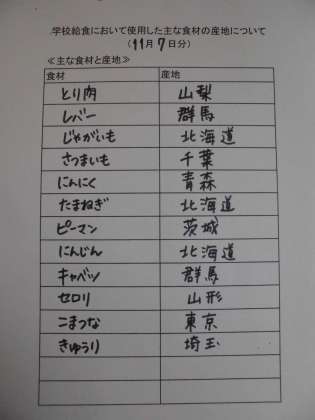 学校給食において使用した主な食材の産地について
(11月7日分)
≪主な食材と産地≫
食材 産地
とり肉 山梨
レバー 群馬
じゃがいも 北海道
さつまいも 千葉
にんにく 青森
たまねぎ 北海道
ピーマン 茨城
にんじん 北海道
キャベツ 群馬
セロリ 山形
こまつな 東京
きゅうり 埼玉